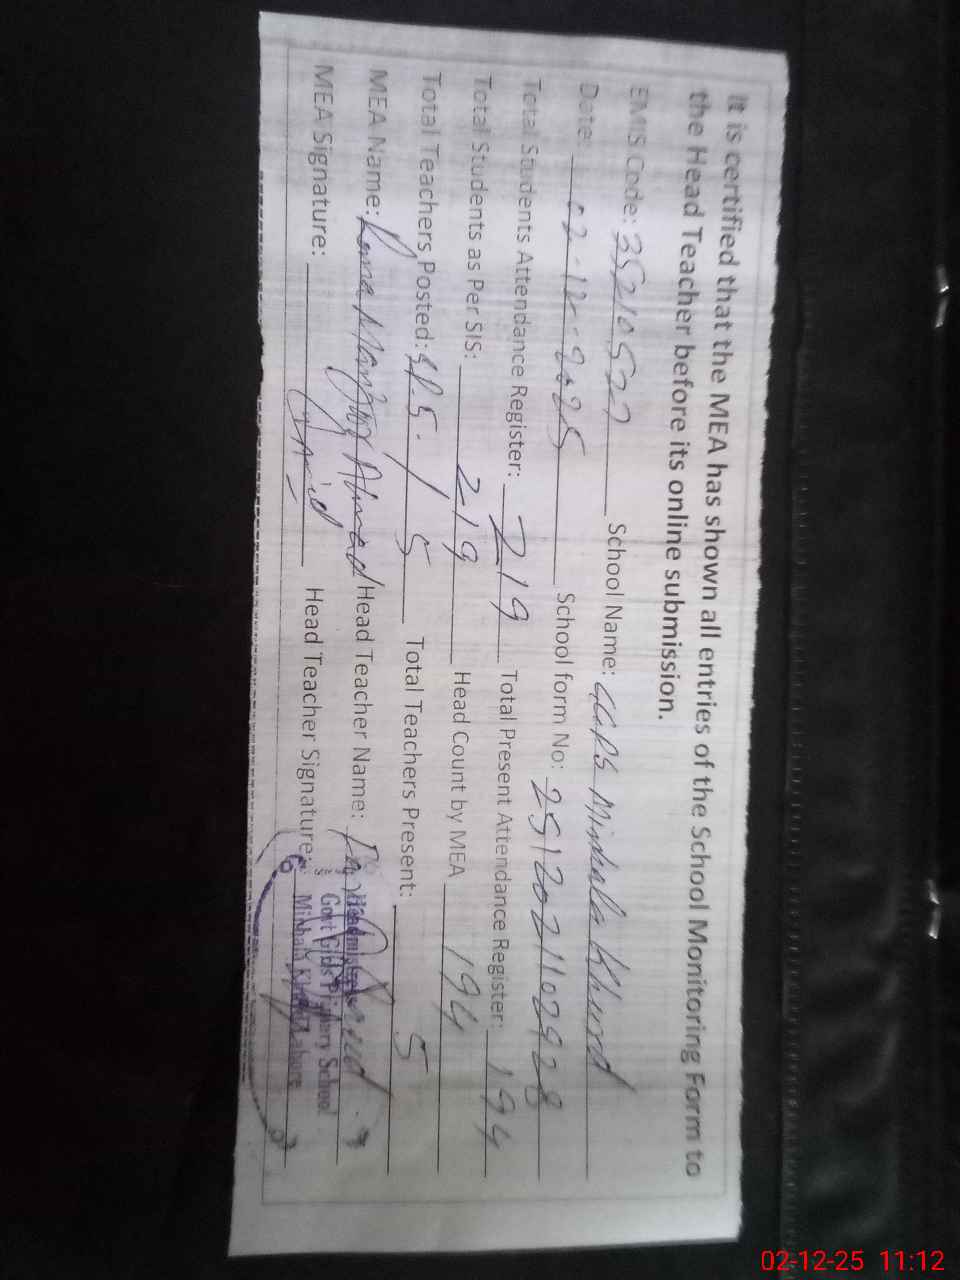 It is certified that the MEA has shown all entries of the School Monitoring Form to
the Head Teacher before its online submission.
EMIS Code: 35210577 School Name: GGPS Minhala Khurd
Date: 02-12-2025 School form No: 2512021102928
Total Students Attendance Register: 219 Total Present Attendance Register: 194
Total Students as Per SIS: 219 Head Count by MEA 194
Total Teachers Posted: 5 Total Teachers Present: 5
MEA Name: Rana Ahmed Head Teacher Name:
MEA Signature: Head Teacher Signature:
Headmistress
Govt Girls Primary School
Minhala Khurd Lahore
02-12-25 11:12